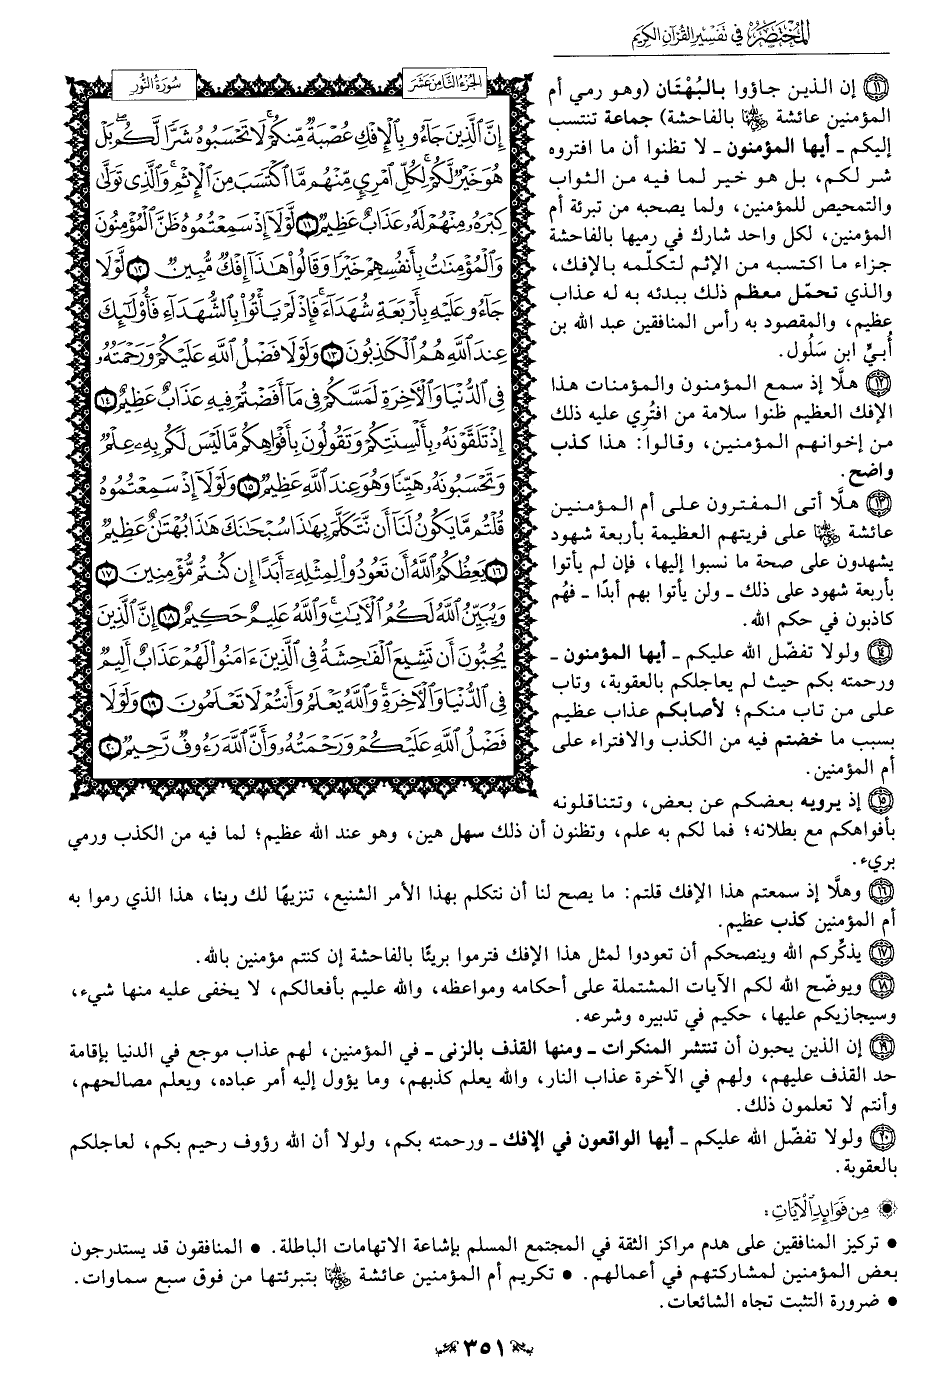 المختصر في تفسير القرآن الكريم
الجزء الثامن عشر
سورة النور
إِنَّ الَّذِينَ جَاءُو بِالْإِفْكِ عُصْبَةٌ مِّنكُمْ لَا تَحْسَبُوهُ شَرًّا لَّكُم بَلْ
هُوَ خَيْرٌ لَّكُمْ لِكُلِّ امْرِئٍ مِّنْهُم مَّا اكْتَسَبَ مِنَ الْإِثْمِ وَالَّذِي تَوَلَّىٰ
كِبْرَهُ مِنْهُمْ لَهُ عَذَابٌ عَظِيمٌ ١١ لَّوْلَا إِذْ سَمِعْتُمُوهُ ظَنَّ الْمُؤْمِنُونَ
وَالْمُؤْمِنَاتُ بِأَنفُسِهِمْ خَيْرًا وَقَالُوا هَٰذَا إِفْكٌ مُّبِينٌ ١٢ لَّوْلَا
جَاءُو عَلَيْهِ بِأَرْبَعَةِ شُهَدَاءَ فَإِذْ لَمْ يَأْتُوا بِالشُّهَدَاءِ فَأُولَٰئِكَ
عِندَ اللَّهِ هُمُ الْكَاذِبُونَ ١٣ وَلَوْلَا فَضْلُ اللَّهِ عَلَيْكُمْ وَرَحْمَتُهُ
فِي الدُّنْيَا وَالْآخِرَةِ لَمَسَّكُمْ فِي مَا أَفَضْتُمْ فِيهِ عَذَابٌ عَظِيمٌ ١٤
إِذْ تَلَقَّوْنَهُ بِأَلْسِنَتِكُمْ وَتَقُولُونَ بِأَفْوَاهِكُم مَّا لَيْسَ لَكُم بِهِ عِلْمٌ
وَتَحْسَبُونَهُ هَيِّنًا وَهُوَ عِندَ اللَّهِ عَظِيمٌ ١٥ وَلَوْلَا إِذْ سَمِعْتُمُوهُ
قُلْتُم مَّا يَكُونُ لَنَا أَن نَّتَكَلَّمَ بِهَٰذَا سُبْحَانَكَ هَٰذَا بُهْتَانٌ عَظِيمٌ
١٦ يَعِظُكُمُ اللَّهُ أَن تَعُودُوا لِمِثْلِهِ أَبَدًا إِن كُنتُم مُّؤْمِنِينَ ١٧
وَيُبَيِّنُ اللَّهُ لَكُمُ الْآيَاتِ وَاللَّهُ عَلِيمٌ حَكِيمٌ ١٨ إِنَّ الَّذِينَ
يُحِبُّونَ أَن تَشِيعَ الْفَاحِشَةُ فِي الَّذِينَ ءَامَنُوا لَهُمْ عَذَابٌ أَلِيمٌ
فِي الدُّنْيَا وَالْآخِرَةِ وَاللَّهُ يَعْلَمُ وَأَنتُمْ لَا تَعْلَمُونَ ١٩ وَلَوْلَا
فَضْلُ اللَّهِ عَلَيْكُمْ وَرَحْمَتُهُ وَأَنَّ اللَّهَ رَءُوفٌ رَّحِيمٌ ٢٠
١١ إن الذين جاؤوا بالبُهْتَان (وهو رمي أم
المؤمنين عائشة رضي الله عنها بالفاحشة) جماعة تنتسب
إليكم ـ أيها المؤمنون ـ لا تظنوا أن ما افتروه
شر لكم، بل هو خير لما فيه من الثواب
والتمحيص للمؤمنين، ولما يصحبه من تبرئة أم
المؤمنين، لكل واحد شارك في رميها بالفاحشة
جزاء ما اكتسبه من الإثم لتكلّمه بالإفك،
والذي تحمّل معظم ذلك ببدئه به له عذاب
عظيم، والمقصود به رأس المنافقين عبد الله بن
أُبيٍّ ابن سَلُول.
١٢ هلَّا إذ سمع المؤمنون والمؤمنات هذا
الإفك العظيم ظنوا سلامة من افتُرِي عليه ذلك
من إخوانهم المؤمنين، وقالوا: هذا كذب
واضح.
١٣ هلَّا أتى المفترون على أم المؤمنين
عائشة رضي الله عنها على فريتهم العظيمة بأربعة شهود
يشهدون على صحة ما نسبوا إليها، فإن لم يأتوا
بأربعة شهود على ذلك ـ ولن يأتوا بهم أبدًا ـ فهُم
كاذبون في حكم الله.
١٤ ولولا تفضّل الله عليكم ـ أيها المؤمنون ـ
ورحمته بكم حيث لم يعاجلكم بالعقوبة، وتاب
على من تاب منكم؛ لأصابكم عذاب عظيم
بسبب ما خضتم فيه من الكذب والافتراء على
أم المؤمنين.
١٥ إذ يرويه بعضكم عن بعض، وتتناقلونه
بأفواهكم مع بطلانه؛ فما لكم به علم، وتظنون أن ذلك سهل هين، وهو عند الله عظيم؛ لما فيه من الكذب ورمي
بريء.
١٦ وهلَّا إذ سمعتم هذا الإفك قلتم: ما يصح لنا أن نتكلم بهذا الأمر الشنيع، تنزيهًا لك ربنا، هذا الذي رموا به
أم المؤمنين كذب عظيم.
١٧ يذكِّركم الله وينصحكم أن تعودوا لمثل هذا الإفك فترموا بريئًا بالفاحشة إن كنتم مؤمنين بالله.
١٨ ويوضّح الله لكم الآيات المشتملة على أحكامه ومواعظه، والله عليم بأفعالكم، لا يخفى عليه منها شيء،
وسيجازيكم عليها، حكيم في تدبيره وشرعه.
١٩ إن الذين يحبون أن تنتشر المنكرات ـ ومنها القذف بالزنى ـ في المؤمنين، لهم عذاب موجع في الدنيا بإقامة
حد القذف عليهم، ولهم في الآخرة عذاب النار، والله يعلم كذبهم، وما يؤول إليه أمر عباده، ويعلم مصالحهم،
وأنتم لا تعلمون ذلك.
٢٠ ولولا تفضّل الله عليكم ـ أيها الواقعون في الإفك ـ ورحمته بكم، ولولا أن الله رؤوف رحيم بكم، لعاجلكم
بالعقوبة.
من فوائد الآيات:
• تركيز المنافقين على هدم مراكز الثقة في المجتمع المسلم بإشاعة الاتهامات الباطلة. • المنافقون قد يستدرجون
بعض المؤمنين لمشاركتهم في أعمالهم. • تكريم أم المؤمنين عائشة رضي الله عنها بتبرئتها من فوق سبع سماوات.
• ضرورة التثبت تجاه الشائعات.
٣٥١